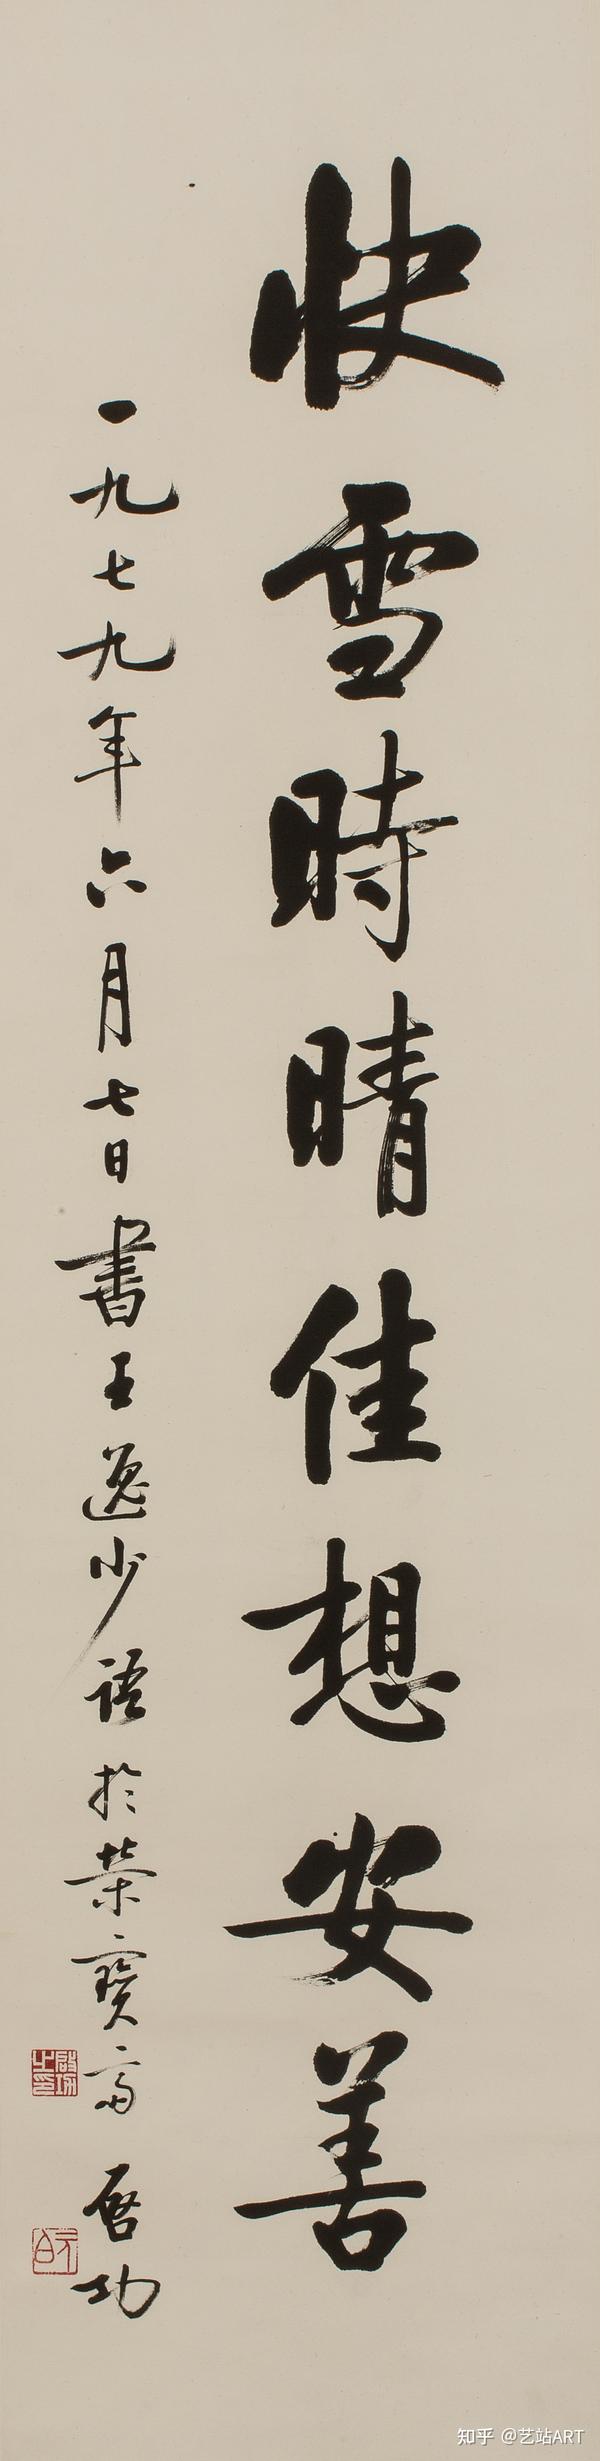 快雪時晴佳想安善
一九七九年六月七日書王逸少語於榮寶齋 啓功
啟功之印
元白
知乎 @艺站ART